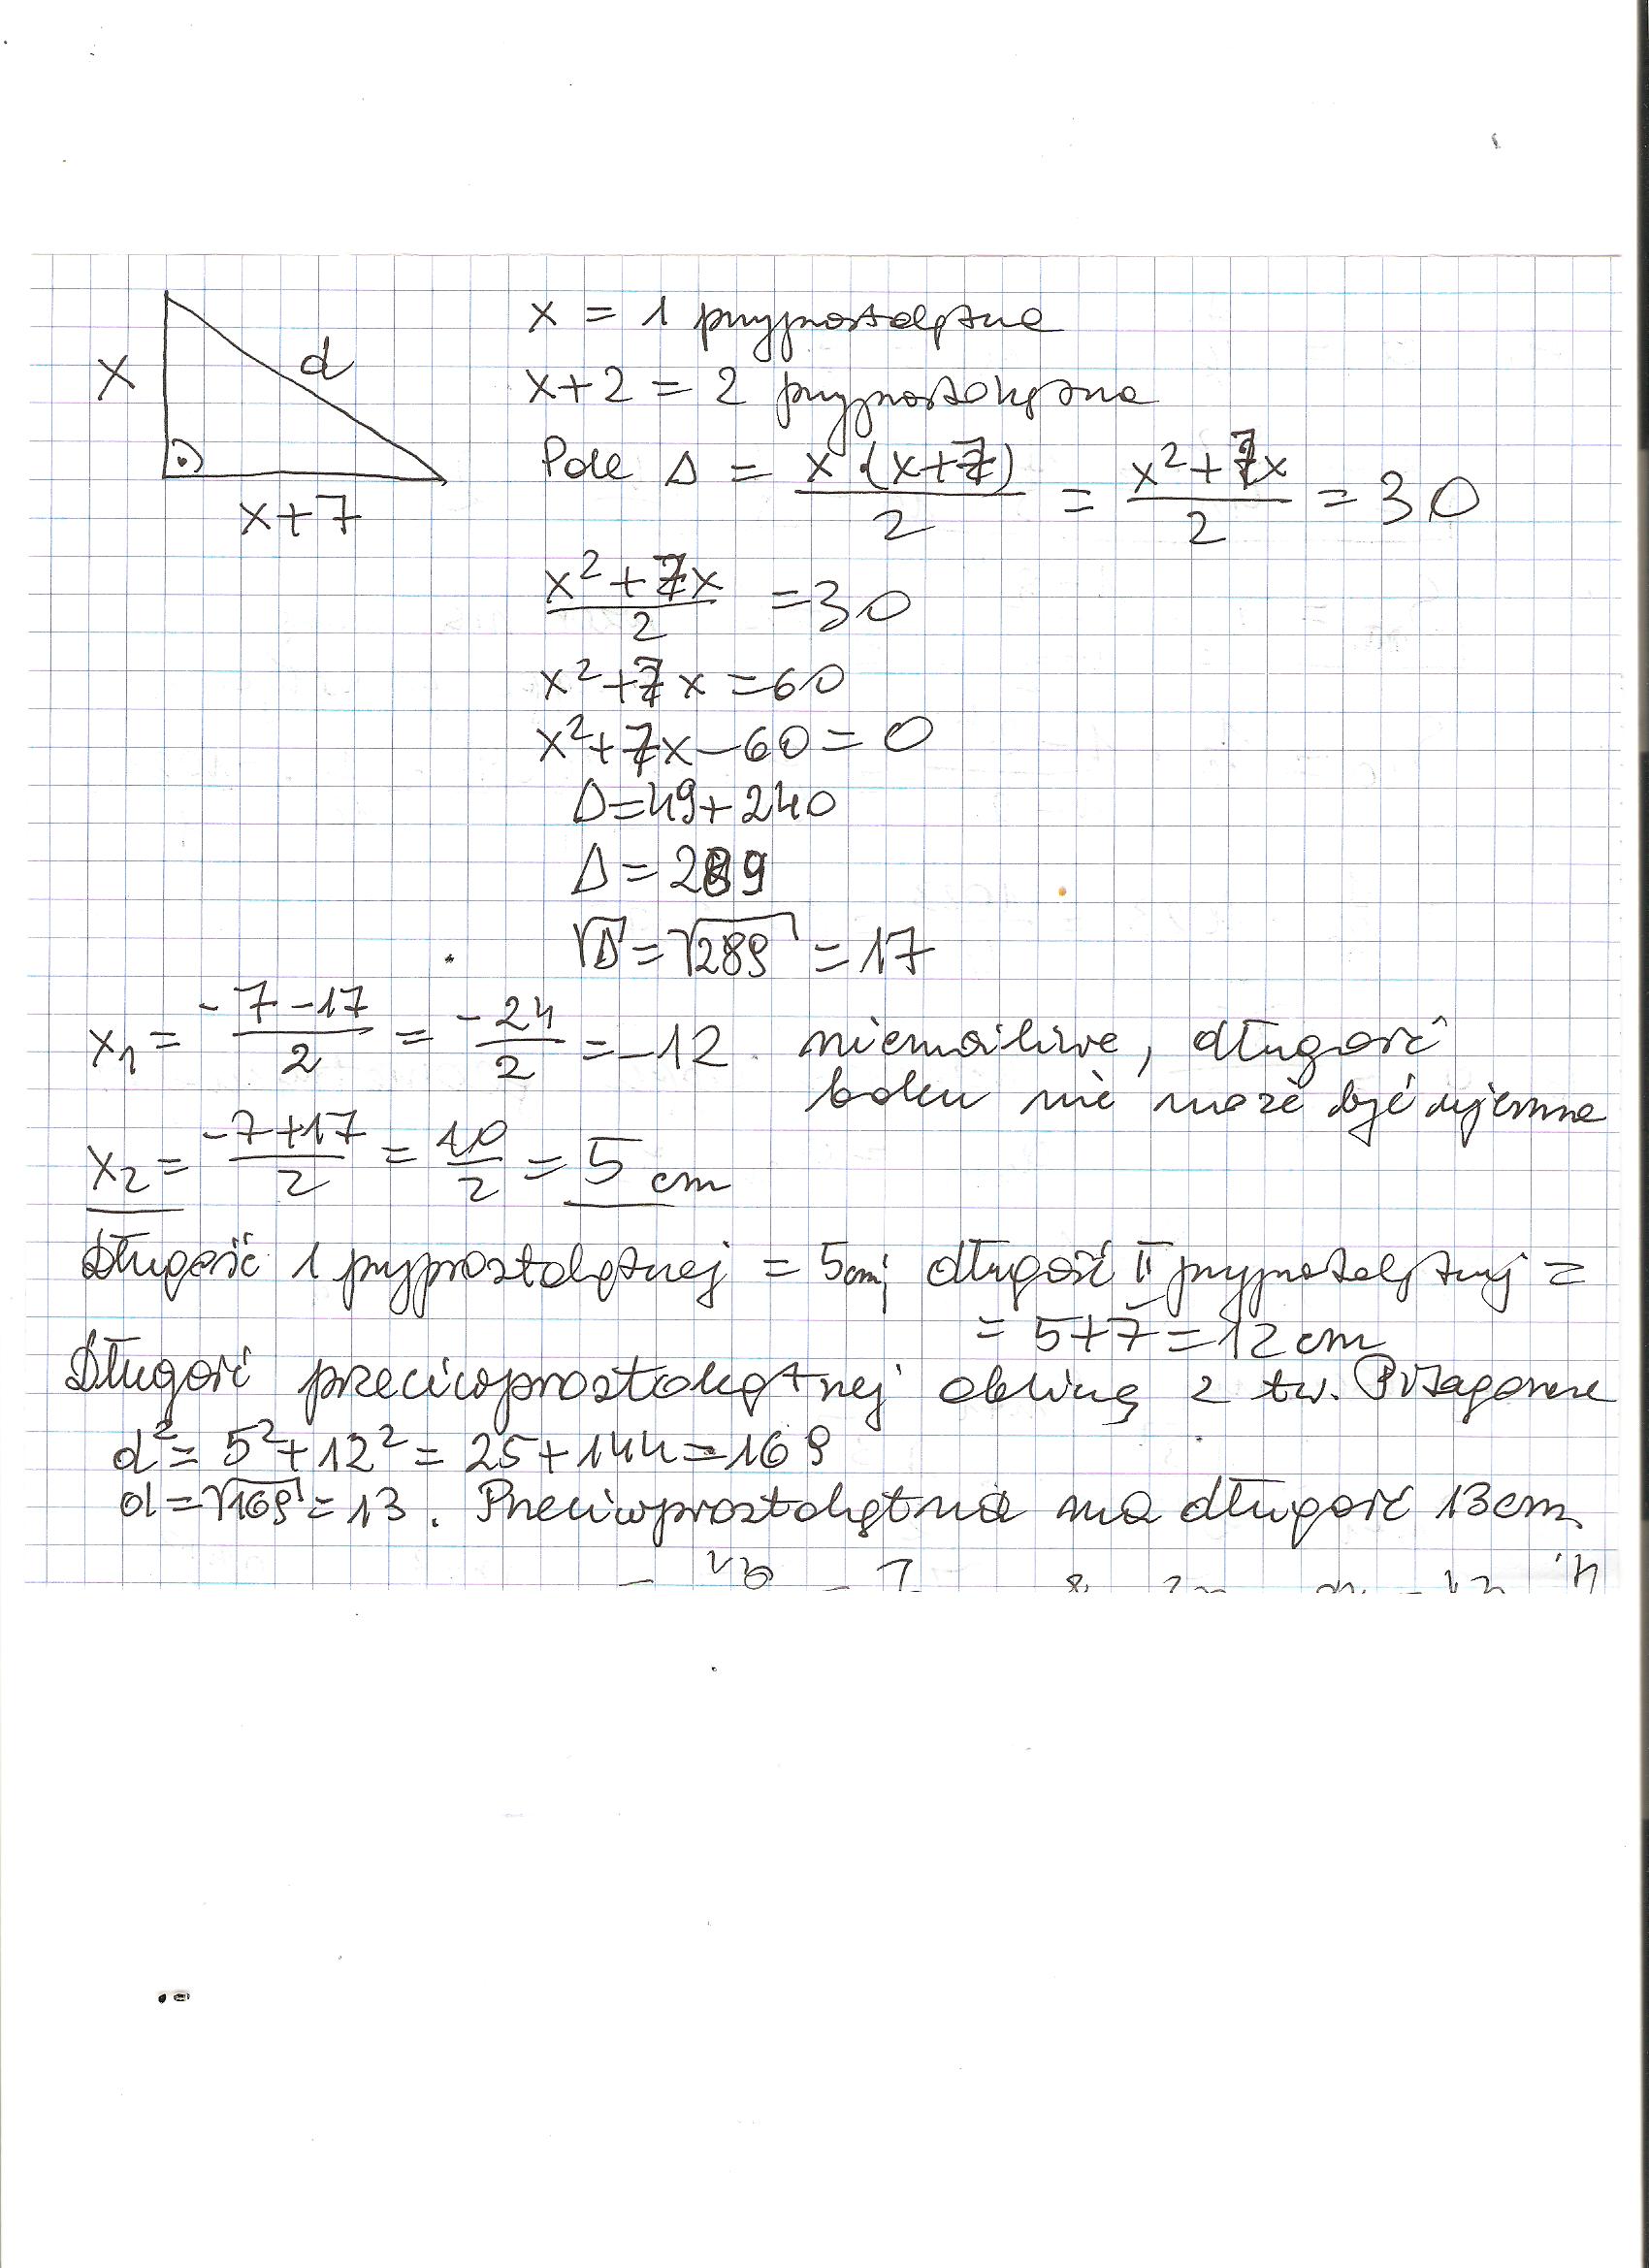 x = 1 przyprostokątna
x+2 = 2 przyprostokątna
x
d
x+7
Pole Δ = x·(x+7)/2 = x²+7x/2 = 30
x²+7x/2 = 30
x²+7x = 60
x²+7x-60 = 0
Δ=49+240
Δ = 289
√Δ = √289 = 17
x₁ = -7-17/2 = -24/2 = -12. niemożliwe, długość
boku nie może być ujemna
x₂ = -7+17/2 = 10/2 = 5 cm
Długość 1 przyprostokątnej = 5cm; długość II przyprostokątnej =
= 5+7 = 12 cm
Długość przeciwprostokątnej obliczę z tw. Pitagorasa
d² = 5²+12² = 25+144 = 169
d = √169 = 13. Przeciwprostokątna ma długość 13cm.